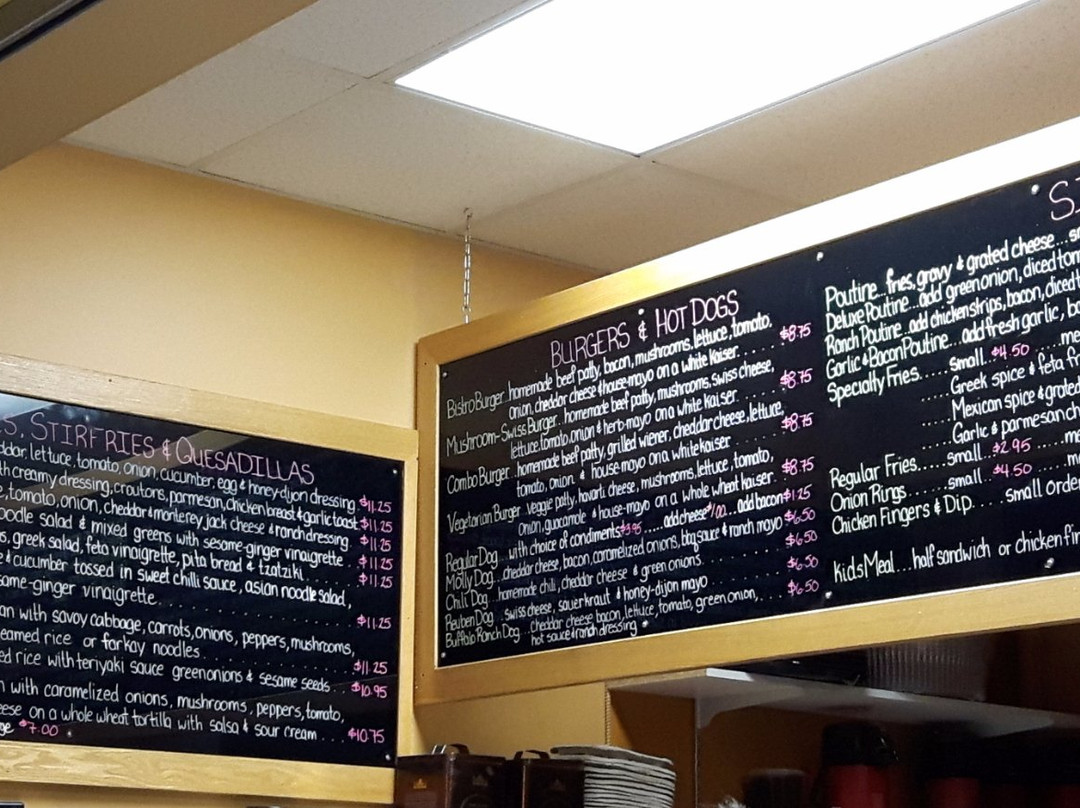 S, STIRFRIES & QUESADILLAS
ddar, lettuce, tomato, onion, cucumber, egg & honey-dijon dressing $11.25
th creamy dressing, croutons, parmesan, chicken breast & garlic toast $11.25
e, tomato, onion, cheddar & monterey jack cheese & ranch dressing $11.25
oodle salad & mixed greens with sesame-ginger vinaigrette $11.25
s, greek salad, feta vinaigrette, pita bread & tzatziki
& cucumber tossed in sweet chilli sauce, asian noodle salad,
same-ginger vinaigrette $11.25
an with savoy cabbage, carrots, onions, peppers, mushrooms,
eamed rice or farkay noodles $11.25
ed rice with teriyaki sauce greenonions & sesame seeds $10.95
n with caramelized onions, mushrooms, peppers, tomato,
eese on a whole wheat tortilla with salsa & sour cream $10.75
ge $7.00
BURGERS & HOT DOGS
Bistro Burger homemade beef patty, bacon, mushrooms, lettuce, tomato,
onion, cheddar cheese & house-mayo on a white kaiser $8.75
Mushroom-Swiss Burger homemade beef patty, mushrooms, swiss cheese,
lettuce, tomato, onion & herb-mayo on a white kaiser $8.75
Combo Burger homemade beef patty, grilled wiener, cheddar cheese, lettuce,
tomato, onion & house-mayo on a white kaiser $8.75
Vegetarian Burger Veggie patty, havarti cheese, mushrooms, lettuce, tomato,
onion, guacamole & house-mayo on a whole wheat kaiser $8.75
Regular Dog with choice of condiments $3.95 add cheese $1.00 add bacon $1.25
Molly Dog cheddar cheese, bacon, caramelized onions, bbq sauce & ranch mayo $6.50
Chili Dog homemade chili, cheddar cheese & green onions $6.50
Reuben Dog swiss cheese, sauerkraut & honey-dijon mayo $6.50
Buffalo Ranch Dog cheddar cheese, bacon, lettuce, tomato, green onion, $6.50
hot sauce & ranch dressing
Poutine...fries, gravy & grated cheese...
Deluxe Poutine...add green onion, diced
Ranch Poutine...add chicken strips, bacon, diced
Garlic & Bacon Poutine...add fresh garlic,
Specialty Fries......small..$4.50
Greek spice & feta
Mexican spice & grated
Garlic & parmesan
Regular Fries.....small...$2.95
Onion Rings......small..$4.50
Chicken Fingers & Dip.....small
Kids Meal...half sandwich or chicken